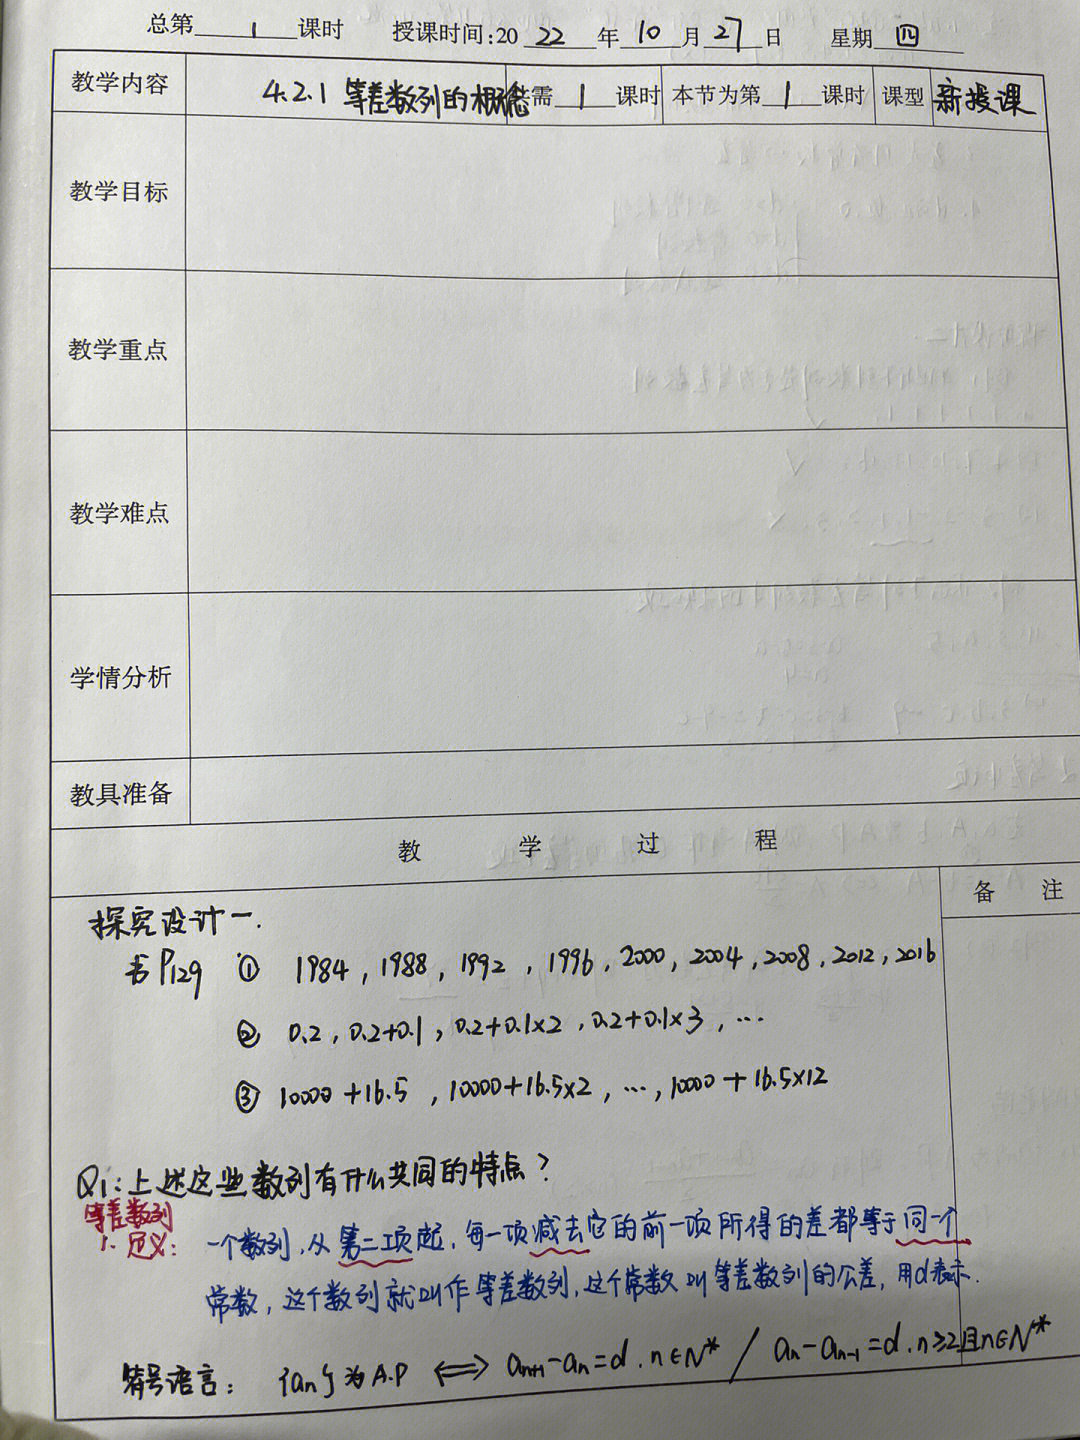 总第 1 课时 授课时间:20 22 年 10 月 27 日 星期 四
教学内容 4.2.1 等差数列的概念 需 1 课时 本节为第 1 课时 课型 新授课
教学目标
教学重点
教学难点
学情分析
教具准备
教 学 过 程
备 注
探究设计一.
书P129 ① 1984, 1988, 1992, 1996, 2000, 2004, 2008, 2012, 2016
② 0.2, 0.2+0.1, 0.2+0.1×2, 0.2+0.1×3, …
③ 10000+16.5, 10000+16.5×2, …, 10000+16.5×12
Q1:上述这些数列有什么共同的特点?
等差数列
1. 定义: 一个数列,从第二项起,每一项减去它的前一项所得的差都等于同一个
常数,这个数列就叫作等差数列,这个常数叫等差数列的公差,用d表示.
符号语言: {an}为A.P ⟺ an+1-an=d. n∈N* / an-an-1=d. n≥2且n∈N*